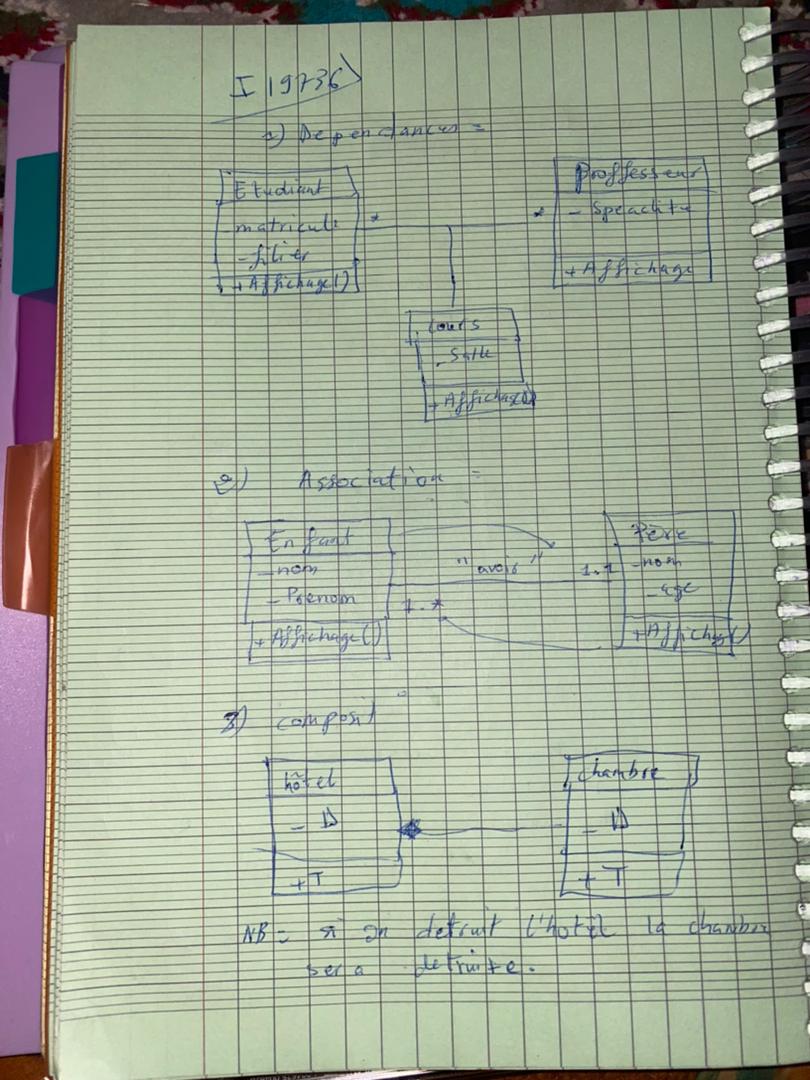 I 19736
1) Dependances =
Etudiant
- matricule
- filier
+ Affichage()
*
*
Proffesseur
- Speaclite
+ Affichage
Cours
- Salle
+ Affichage()
2) Association =
Enfant
- nom
- Prenom
+ Affichage()
"avoir"
1..*
1.1
Père
- nom
- age
+ Affichage()
3) composit
hôtel
- D
+ T
chambre
- D
+ T
NB = si on detruit l'hotel la chambre
sera detruite.